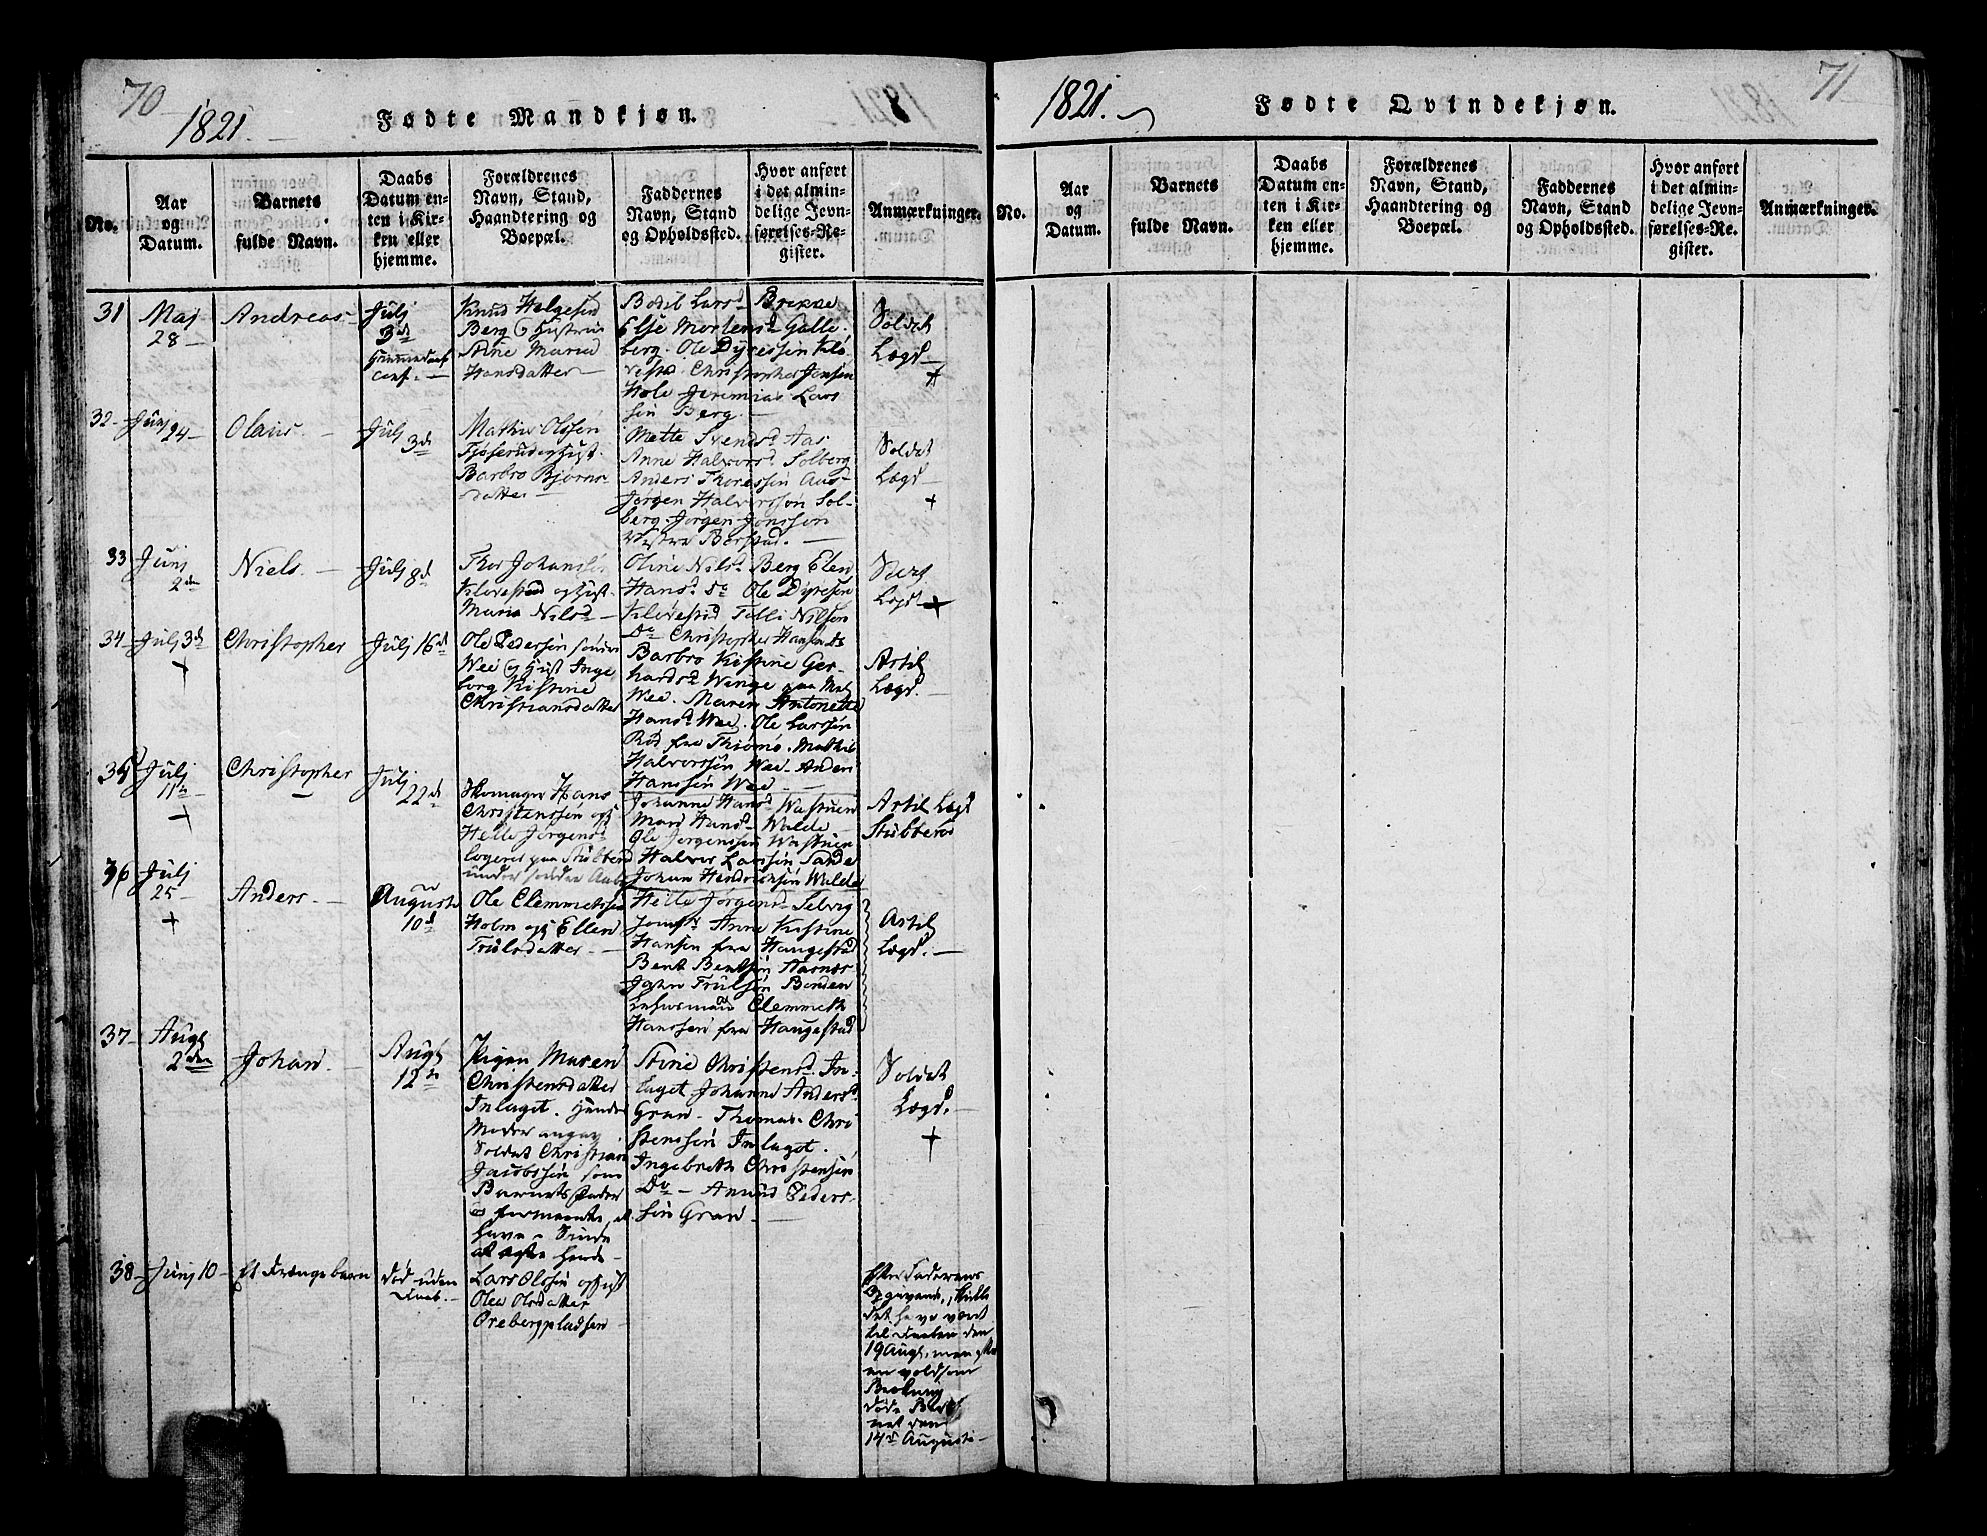 70
1821.
Fødte Mandkjøn.
No.
Aar
og
Datum.
Barnets
fulde Navn.
Daabs
Datum en-
ten i Kir-
ken eller
hjemme.
Forældrenes
Navn, Stand,
Haandtering og
Boepæl.
Faddernes
Navn, Stand
og Opholdssted.
Hvor anført
i det almin-
delige Jevn-
førelses-Re-
gister.
Anmærkninger.
31
Maj
28
Andreas
Julj
3d
Knud Helgesen
Berg og Hustrue
Anne Maria
Hansdatter
Bodil Larsd. Brekke
Else Mortensd. Galle-
berg. Ole Dyressøn Klø-
vestad. Christopher Jensen
Hole Jeremias Lars
søn Berg.
Soldat
Lægd
32
Junj 24
Olaus
Julj 3d
Mathis Olssøn
Barbro Bjørns-
datter
Mette Svendsd. Aas
Anne Halvorsd. Solberg
Anders Thoressøn Aas
Jørgen Halvorssøn Sol-
berg. Jørgen Jonssøn
Vestre Borstad.
Soldat
Lægd
33
Junj
2d
Niels
Julj 8d
Thor Johanssøn
Kløvestad og Hust.
Maria Nilsd
Oline Nilsd. Berg Elen
Hansd. Do Ole Dyressøn
Kløvestad Tolli Nilssøn
Do Christopher Hansen Do
Lægd
34
Julj 3d
Christopher
Julj 16d
Ole Pedersøn søndre
Wee og Hust Inge
borg Kistine
Christiansdatter
Barbro Kistine Ger-
hardsd. Wenge paa
Wee. Maren Antonette
Hansd. Wee. Ole Larssøn
Rød fra Thiømø. Mathis
Halvorssøn Wee. Anders
Hanssøn Wee
Artil
Lægd.
35
Julj
11te
Christopher
Julj
22d
Skomager Hans
Christenssøn og
Helle Jørgensd.
logerer paa Stubberød
under søndre
Johanne Hansd. Wastuen
Mari Hansd. Walde
Ole Jørgenssøn Wastuen
Halvor Larssøn Sande
Johan Hendrichsøn Walde
Artil Lægd
Stubberød
36
Julj
25
Anders
Augusti
10d
Ole Clemmetssøn
Holm og Ellen
Trulsdatter
Helle Jørgensd. Selvig
Jomfr. Anne Kistine
Hansen fra Haugestad
Bent Bentsøn Aarnæs
John Trulsøn Bonden
Lehnsmand Clemmeth
Hanssøn fra Haugestad
Artil
Lægd.
37
Augt
2den
Johan
Augt
12te
Pigen Maren
Christensdatter
Inlaget. Hendes
Moder angav
Soldat Christian
Jacobssøn som
Barnets Fader
at have i Sinde
at ægte hende
Stine Christensd. In-
laget Johanne Andersd.
Gran. Thomas Chri
stenssøn Inlaget.
Ingebreth Christenssøn
Do Amund Peders-
søn Gran
Soldat
Lægd.
38
Junj 10
Et Drængebarn
død uden
Daab.
Lars Olssøn og Hust
Olea Olsdatter
Orebergpladsen
Efter Faderens
Opgivende, skulle
det have været
til Daaben den
19 Augt, men efter
en voldsom
død Bar-
net den
14d Augusti
1821.
Fødte Qvindekjøn.
71
No.
Aar
og
Datum.
Barnets
fulde Navn.
Daabs
Datum en-
ten i Kir-
ken eller
hjemme.
Forældrenes
Navn, Stand,
Haandtering og
Boepæl.
Faddernes
Navn, Stand
og Opholdssted.
Hvor anført
i det almin-
delige Jevn-
førelses-Re-
gister.
Anmærkninger.